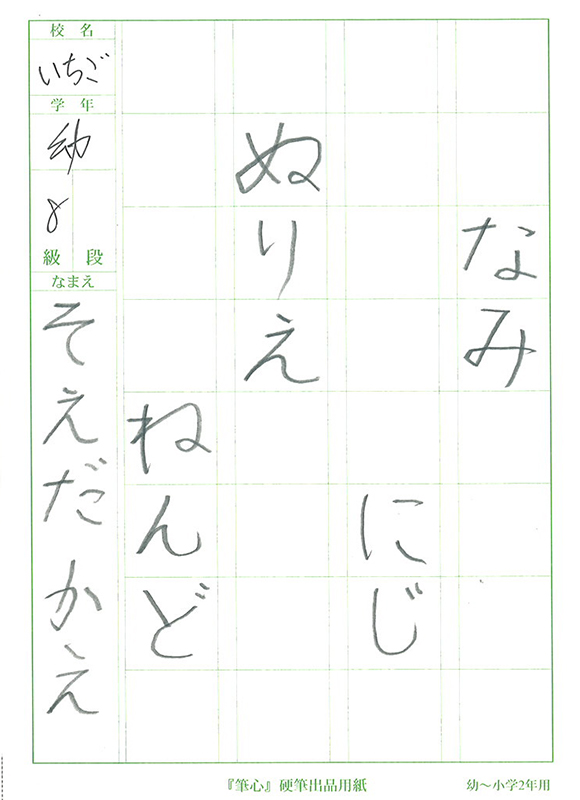 なみ
にじ
ぬりえ
ねんど
校名
いちご
学年
幼
8
級 段
なまえ
そえだ かえ
『筆心』硬筆出品用紙
幼〜小学2年用